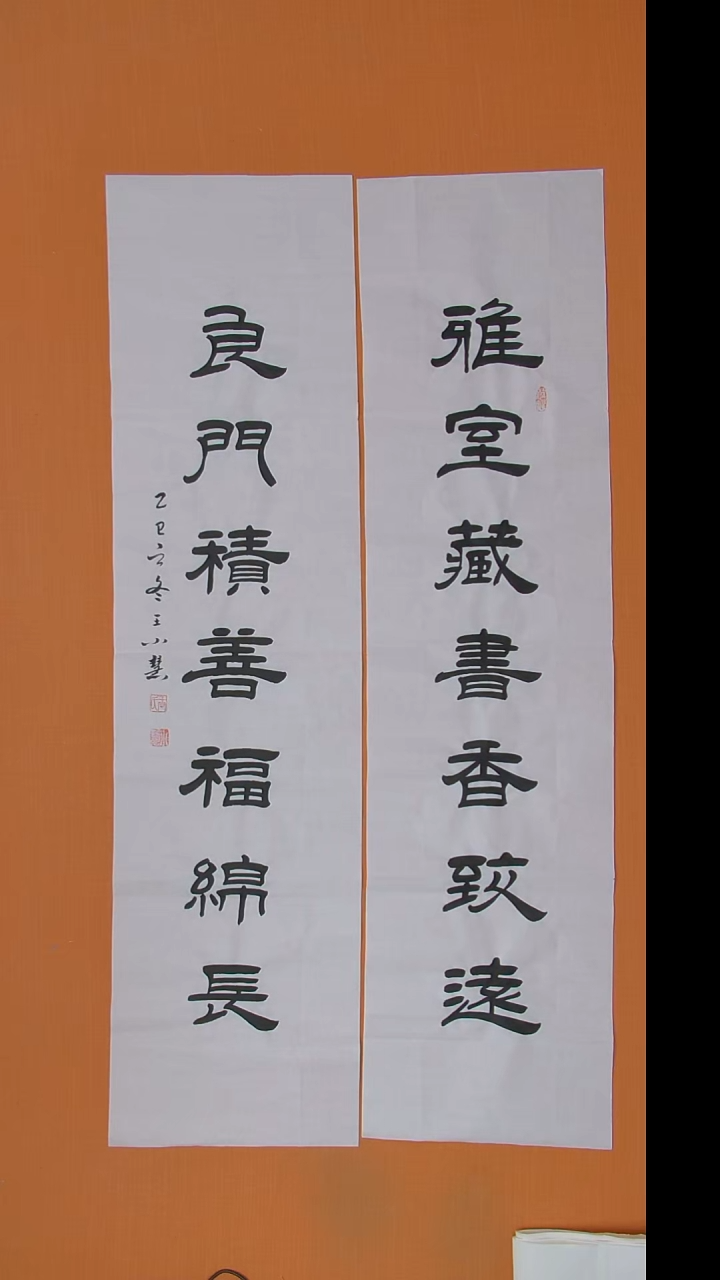 雅室藏書香致遠
良門積善福綿長
乙巳立冬王小慧